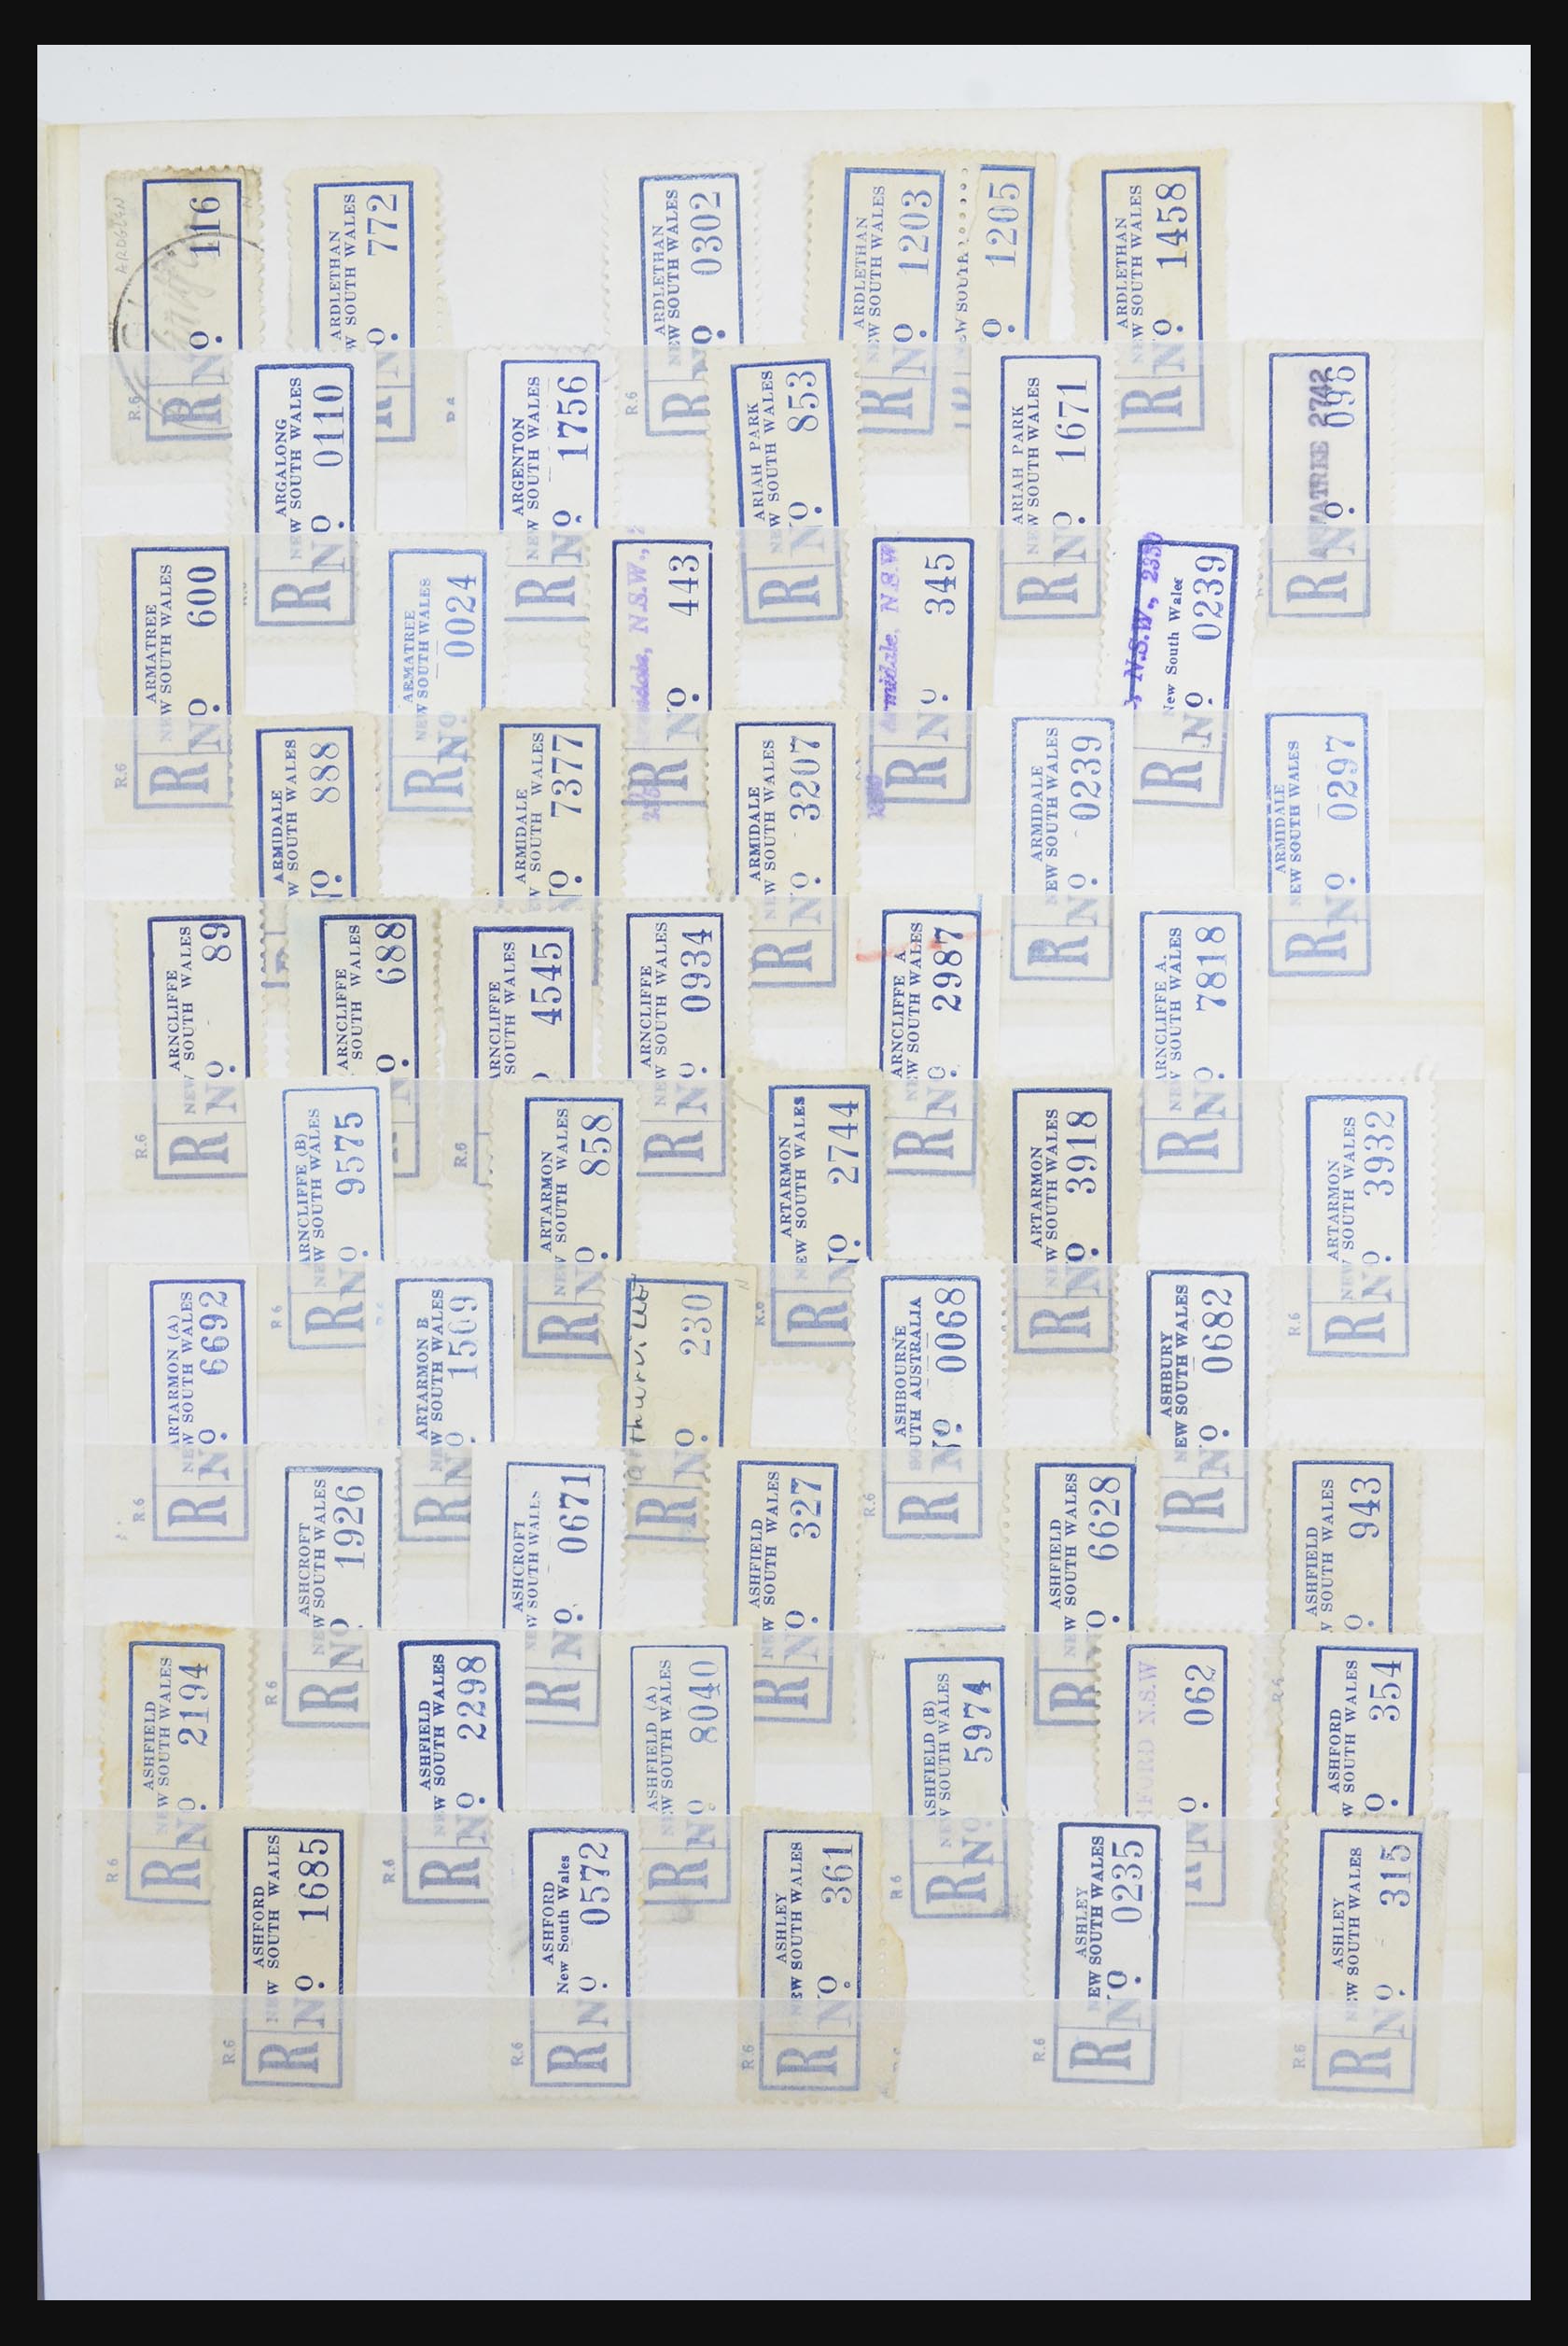 ARDGLEN
R.6
R
No. 116
ARDLETHAN
W SOUTH WALES
No. 772
R.6
ARDLETHAN
NEW SOUTH WALES
R
No. 0302
ARDLETHAN
NEW SOUTH WALES
R
No. 1203
W SOUTH
1205
ARDLETHAN
NEW SOUTH WALES
R
No. 1458
ARGALONG
NEW SOUTH WALES
R
No. 0110
ARGENTON
NEW SOUTH WALES
R
No. 1756
ARIAH PARK
NEW SOUTH WALES
R
No. 853
ARIAH PARK
NEW SOUTH WALES
R
No. 1671
ARMATREE 2742
R
No.
R.6
ARMATREE
NEW SOUTH WALES
R
No. 600
ARMATREE
NEW SOUTH WALES
R
No. 0024
N.S.W.,
R
No. 443
Armidale, N.S.W
R
No. 345
N.S.W., 2350
New South Wales
R
No. 0239
ARMIDALE
W SOUTH WALES
No. 888
ARMIDALE
EW SOUTH WALES
No. 7377
ARMIDALE
NEW SOUTH WALES
R
No. 3207
ARMIDALE
NEW SOUTH WALES
R
No. 0239
ARMIDALE
NEW SOUTH WALES
R
No. 0297
R.6
ARNCLIFFE
NEW SOUTH WALES
R
No. 89
ARNCLIFFE
SOUTH WALES
No. 688
R.6
ARNCLIFFE
SOUTH WALES
4545
ARNCLIFFE
NEW SOUTH WALES
R
No. 0934
ARNCLIFFE A
NEW SOUTH WALES
R
No. 2987
ARNCLIFFE A.
NEW SOUTH WALES
R
No. 7818
R.6
ARNCLIFFE (B)
NEW SOUTH WALES
R
No. 9575
ARTARMON
NEW SOUTH WALES
R
No. 858
R.6
ARTARMON
NEW SOUTH WALES
R
No. 2744
ARTARMON
NEW SOUTH WALES
R
No. 3918
R.6
ARTARMON
NEW SOUTH WALES
R
No. 3932
R.6
ARTARMON (A)
NEW SOUTH WALES
R
No. 6692
ARTARMON B
NEW SOUTH WALES
R
No. 1569
Arthurville
R
No. 230
R.6
ASHBOURNE
SOUTH AUSTRALIA
R
No. 0068
ASHBURY
NEW SOUTH WALES
R
No. 0682
R.6
ASHCROFT
NEW SOUTH WALES
R
No. 1926
ASHCROFT
NEW SOUTH WALES
R
No. 0671
ASHFIELD
NEW SOUTH WALES
R
No. 327
ASHFIELD
NEW SOUTH WALES
R
No. 6628
R.6
ASHFIELD
W SOUTH WALES
No. 943
R.6
ASHFIELD
NEW SOUTH WALES
R
No. 2194
R.6
ASHFIELD
NEW SOUTH WALES
R
No. 2298
ASHFIELD (A)
NEW SOUTH WALES
R
No. 8040
R.6
ASHFIELD (B)
NEW SOUTH WALES
R
No. 5974
HFORD N.S.W
No. 062
ASHFORD
W SOUTH WALES
No. 354
R.6
ASHFORD
NEW SOUTH WALES
R
No. 1685
R.6
ASHFORD
New South Wales
R
No. 0572
R.6
ASHLEY
NEW SOUTH WALES
R
No. 361
R.6
ASHLEY
NEW SOUTH WALES
R
No. 0235
R.6
ASHLEY
NEW SOUTH WALES
R
No. 315